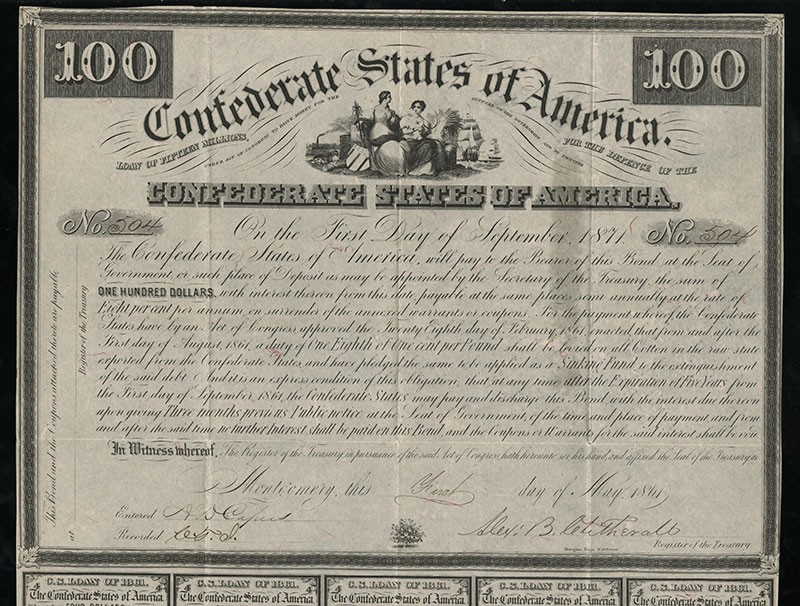 100
100
Confederate States of America.
LOAN OF FIFTEEN MILLIONS,
UNDER ACT OF CONGRESS TO RAISE MONEY FOR THE
SUPPORT OF THE GOVERNMENT AND TO PROVIDE
FOR THE DEFENCE OF THE
CONFEDERATE STATES OF AMERICA,
No. 504
No. 504
On the First Day of September, 1871
The Confederate States of America, will pay to the Bearer of this Bond, at the Seat of
Government, or such place of Deposit as may be appointed by the Secretary of the Treasury, the sum of
ONE HUNDRED DOLLARS, with interest thereon from this date, payable at the same places, semi annually, at the rate of
Eight per cent per annum, on surrender of the annexed warrants or coupons. For the payment whereof the Confederate
States have by an Act of Congress approved the Twenty Eighth day of February, 1861, enacted that from and after the
First day of August, 1861, a duty of One Eighth of One cent per Pound shall be levied on all Cotton in the raw state
exported from the Confederate States, and have pledged the same to be applied as a Sinking Fund to the extinguishment
of the said debt. And it is an express condition of this obligation, that at any time after the Expiration of Five Years from
the First day of September, 1861, the Confederate States may pay and discharge this Bond, with the interest due thereon
upon giving Three months previous Public notice at the Seat of Government, of the time and place of payment, and from
and after the said time no further Interest shall be paid on this Bond, and the Coupons or Warrants for the said interest shall be void
In Witness whereof, The Register of the Treasury, in pursuance of the said Act of Congress, hath hereunto set his hand, and affixed the Seal of the Treasury, at
Montgomery, this First day of May, 1861,
Entered
Recorded
Alex: B. Clitherall
Register of the Treasury.
This Bond and the Coupons attached thereto are payable
at
Register of the Treasury
C.S. LOAN OF 1861.
The Confederate States of America
FOUR DOLLARS
C.S. LOAN OF 1861.
The Confederate States of America
C.S. LOAN OF 1861.
The Confederate States of America
C.S. LOAN OF 1861.
The Confederate States of America
C.S. LOAN OF 1861.
The Confederate States of America